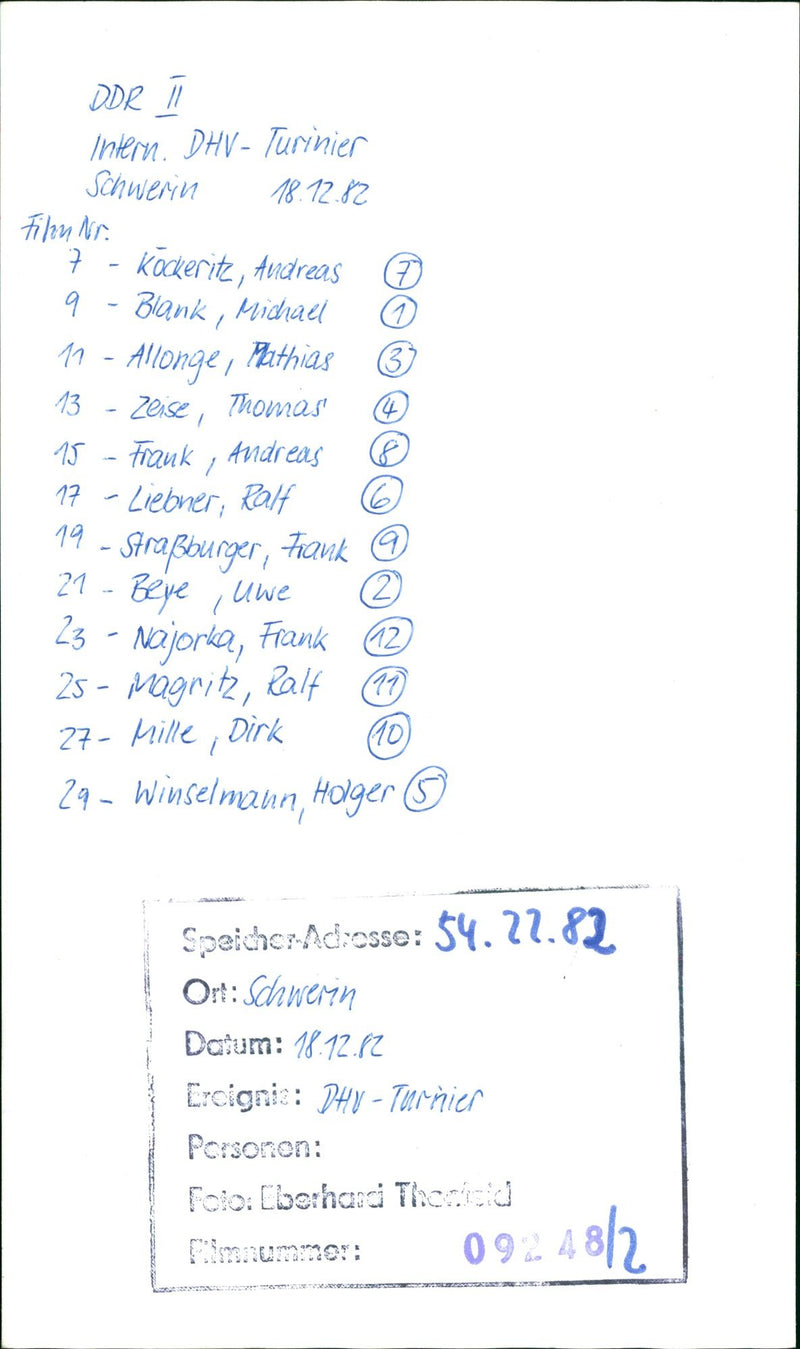 DDR II
Intern. DHV-Turinier
Schwerin 18.12.82
Film Nr.
7 - Köckeritz, Andreas 7
9 - Blank, Michael 1
11 - Allonge, Mathias 3
13 - Zeise, Thomas 4
15 - Frank, Andreas 8
17 - Liebner, Ralf 6
19 - Straßburger, Frank 9
21 - Beye, Uwe 2
23 - Najorka, Frank 12
25 - Magritz, Ralf 11
27 - Mille, Dirk 10
29 - Winselmann, Holger 5
Speicher-Adresse: 54.22.82
Ort: Schwerin
Datum: 18.12.82
Ereignis: DHV-Turnier
Personen:
Foto: Eberhard Thonfeld
Filmnummer: 09248/2